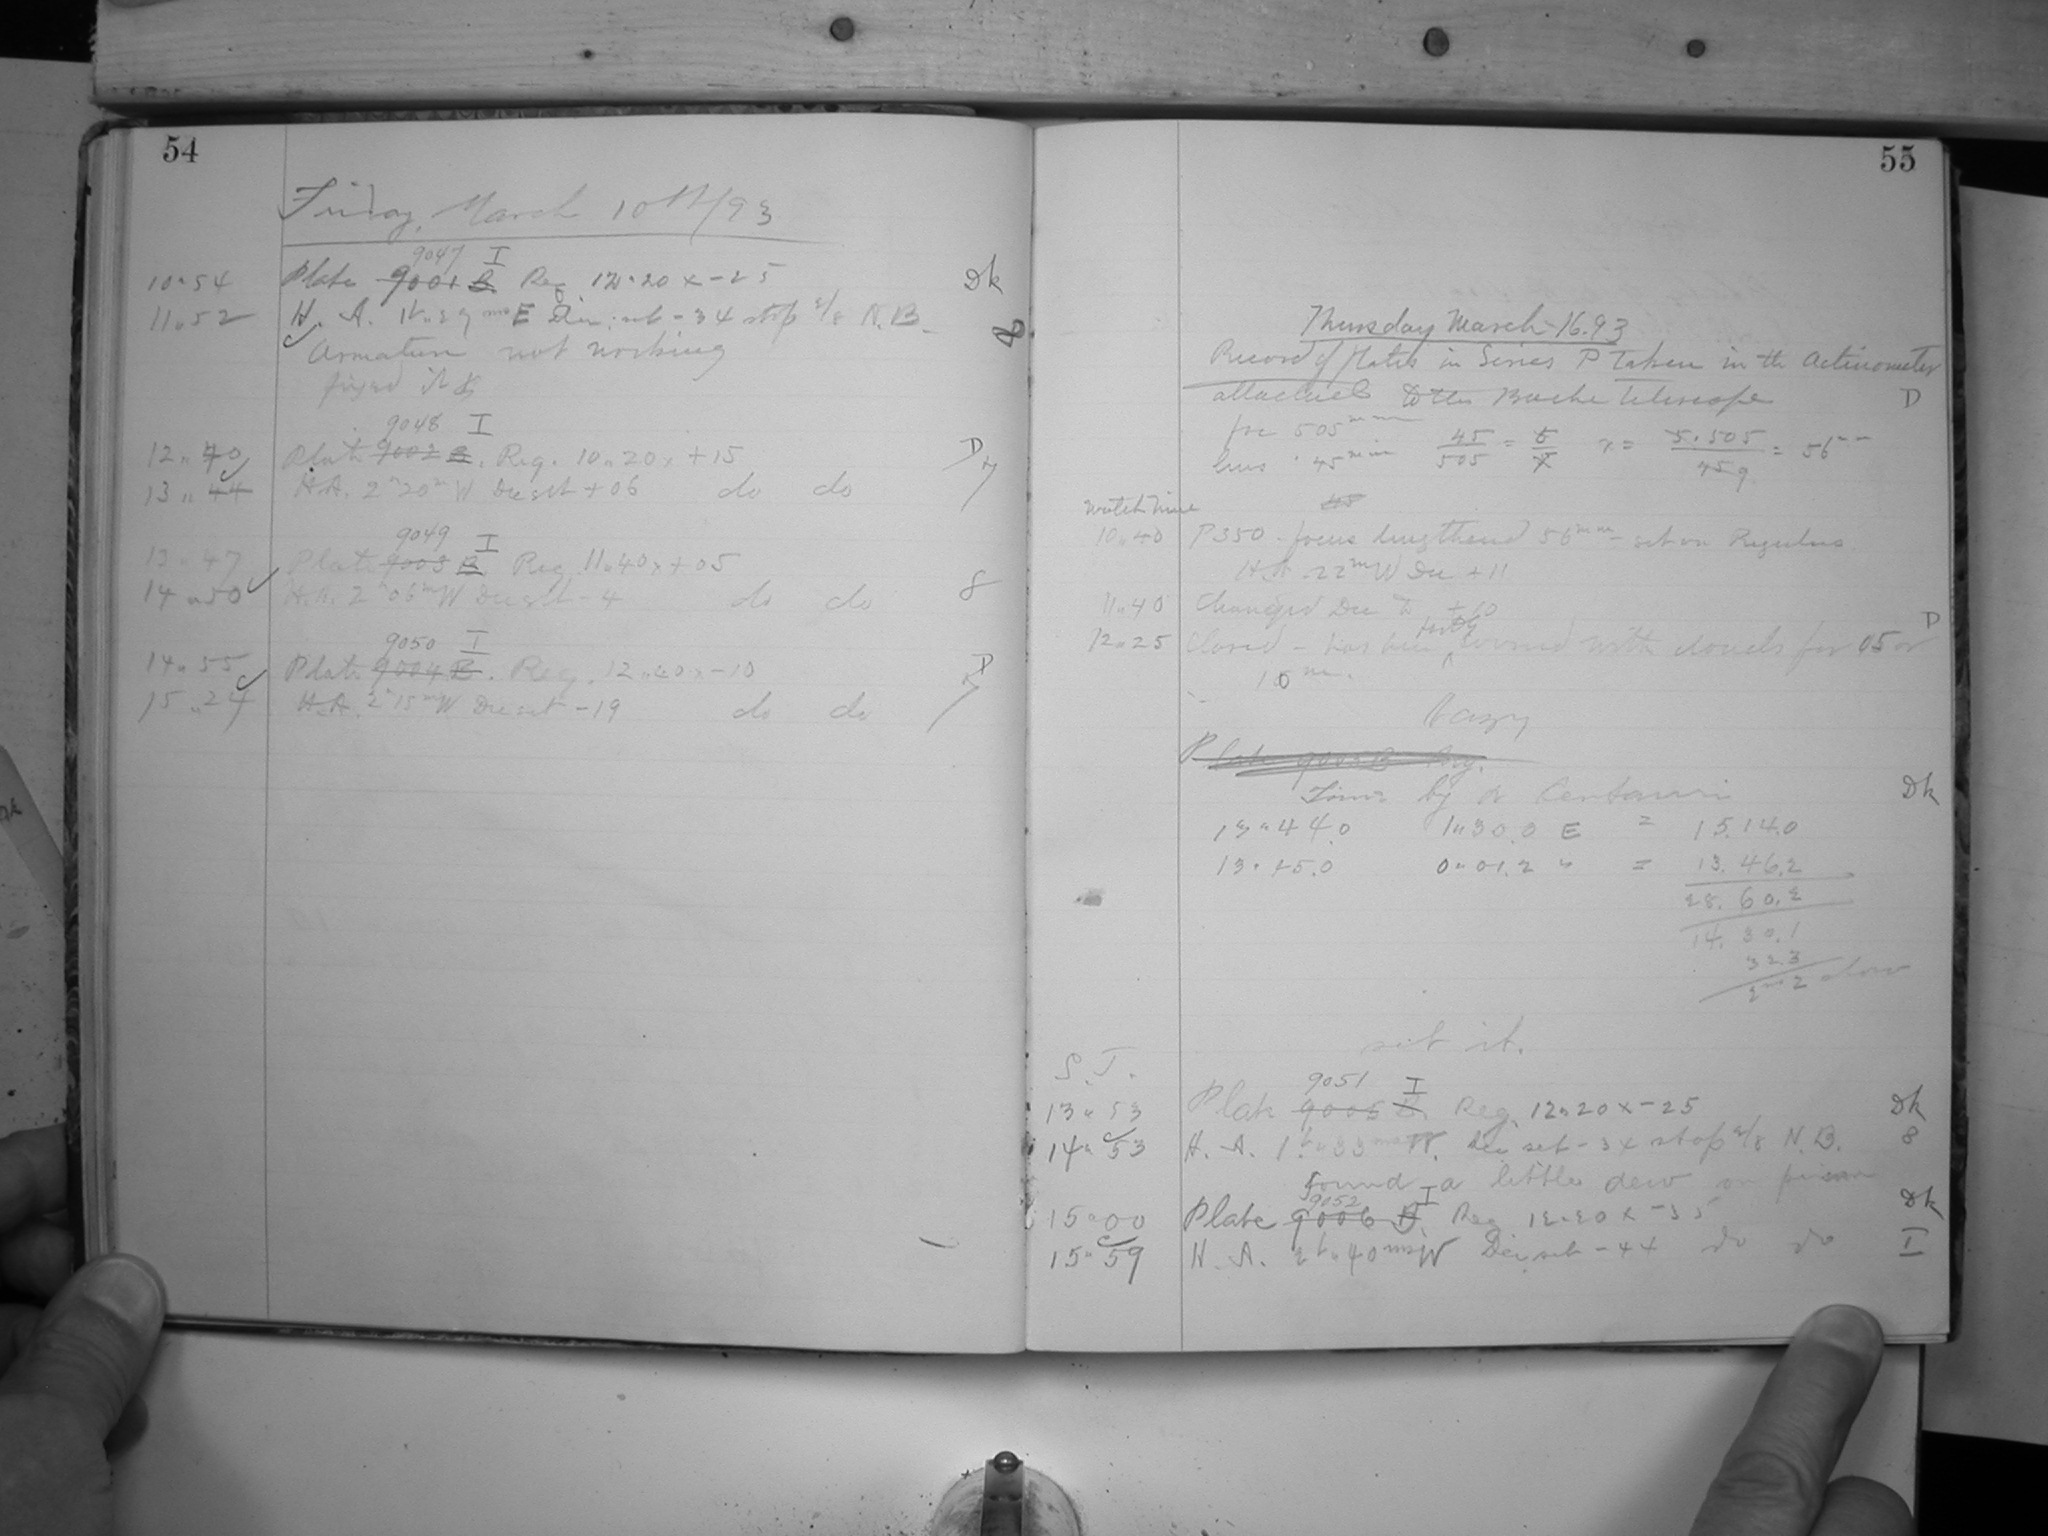 54
Friday, March 10th/93
9047 I
10 54 Plate 9001 B Reg 12 20 x -25 Dk
11 52 H. A. 1h 29 m E Dec. set -34 stop 2/8 N. B. 8
Armature not working
fixed it
9048 I
12 40 Plate 9002 B. Reg. 10 20 x +15 D
13 44 H.A. 2h 20m W Dec set +06 do do
9049 I
13 47 Plate 9003 B Reg 11 40 x +05
14 50 H.A. 2h 06m W Dec set -4 do do 8
9050 I
14 55 Plate 9004 B. Reg. 12 40 x -10 D
15 24 H.A. 2h 15m W Dec set -19 do do
55
Thursday March 16.93
Record of Plates in Series P Taken in the Actinometer
attached to the Bache Telescope D
foc 505 mm 45/505 = 5/x x = 5.505/45 = 56 mm
lens 45 mm
watch time
10 40 P350 - focus lengthened 56 mm - set on Regulus
H.A. 22m W Dec +11
11 40 Changed Dec to +10
12 25 Closed - has been covered with clouds for 05 or D
10 m.
hazy
Plate 9005 B Reg.
Time by α Centauri Dk
13 44.0 1 30.0 E = 15.14.0
13 45.0 0 01.2 " = 13.46.2
28.60.2
14.30.1
32.3
2m 2 slow
set it.
S.T.
9051 I
13 53 Plate 9005 B. Reg. 12 20 x -25 Dk
14 53 H. A. 1h 33m W. Dec set -34 stop 2/8 N. B. 8
found a little dew on prism
9052 I
15 00 Plate 9006 B Reg 12 20 x -35 Dk
15 59 H. A. 2h 40m W Dec set -44 do do I